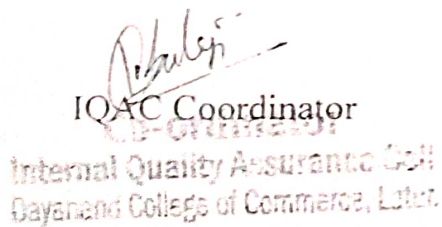 IQAC Coordinator
Co-ordinator
Internal Quality Assurance Cell
Dayanand College of Commerce, Latur.